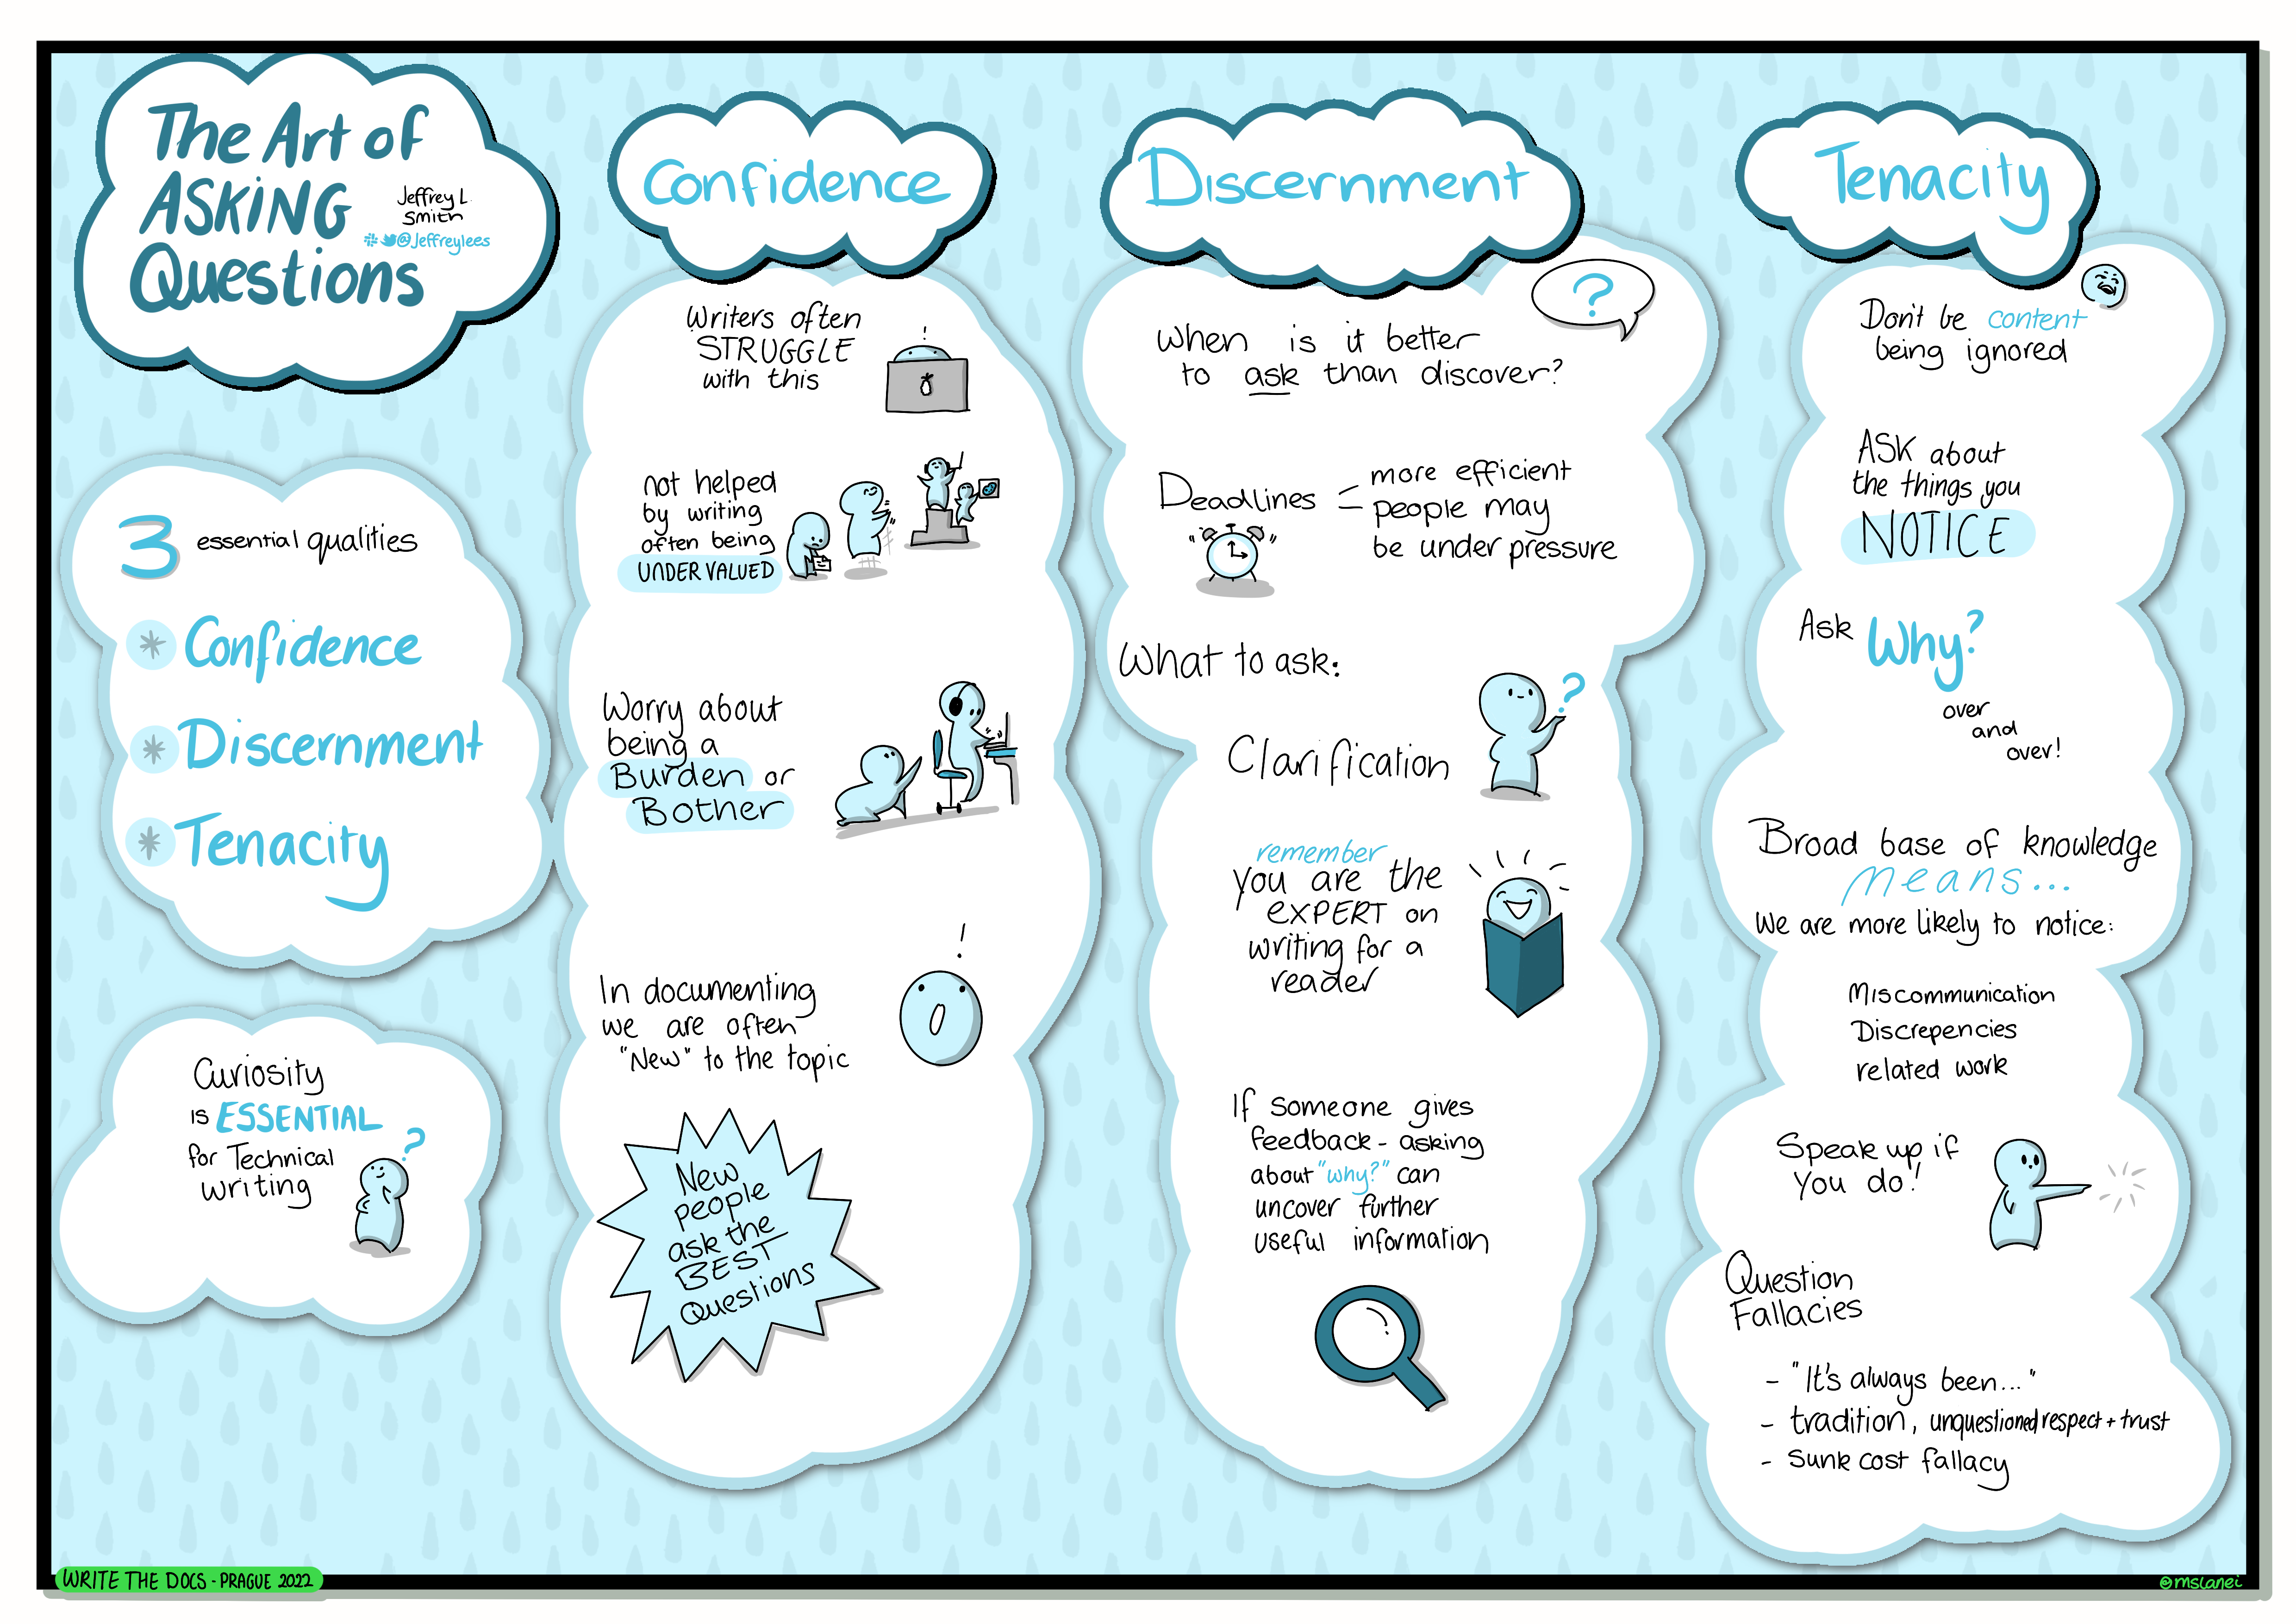 The Art of
ASKING
Questions
Jeffrey L
Smith
@Jeffreylees
3 essential qualities
* Confidence
* Discernment
* Tenacity
Curiosity
is ESSENTIAL
for Technical
writing
?
Confidence
Writers often
STRUGGLE
with this
!
not helped
by writing
often being
UNDERVALUED
Worry about
being a
Burden or
Bother
!
In documenting
we are often
"New" to the topic
New
people
ask the
BEST
Questions
Discernment
?
When is it better
to ask than discover?
Deadlines = more efficient
people may
be under pressure
What to ask:
?
Clarification
remember
you are the
EXPERT on
writing for a
reader
If someone gives
feedback - asking
about "why?" can
uncover further
useful information
Tenacity
Don't be content
being ignored
ASK about
the things you
NOTICE
Ask Why?
over
and
over!
Broad base of knowledge
means...
We are more likely to notice:
Miscommunication
Discrepencies
related work
Speak up if
you do!
Question
Fallacies
- "It's always been..."
- tradition, unquestioned respect + trust
- sunk cost fallacy
WRITE THE DOCS - PRAGUE 2022
@mslanei